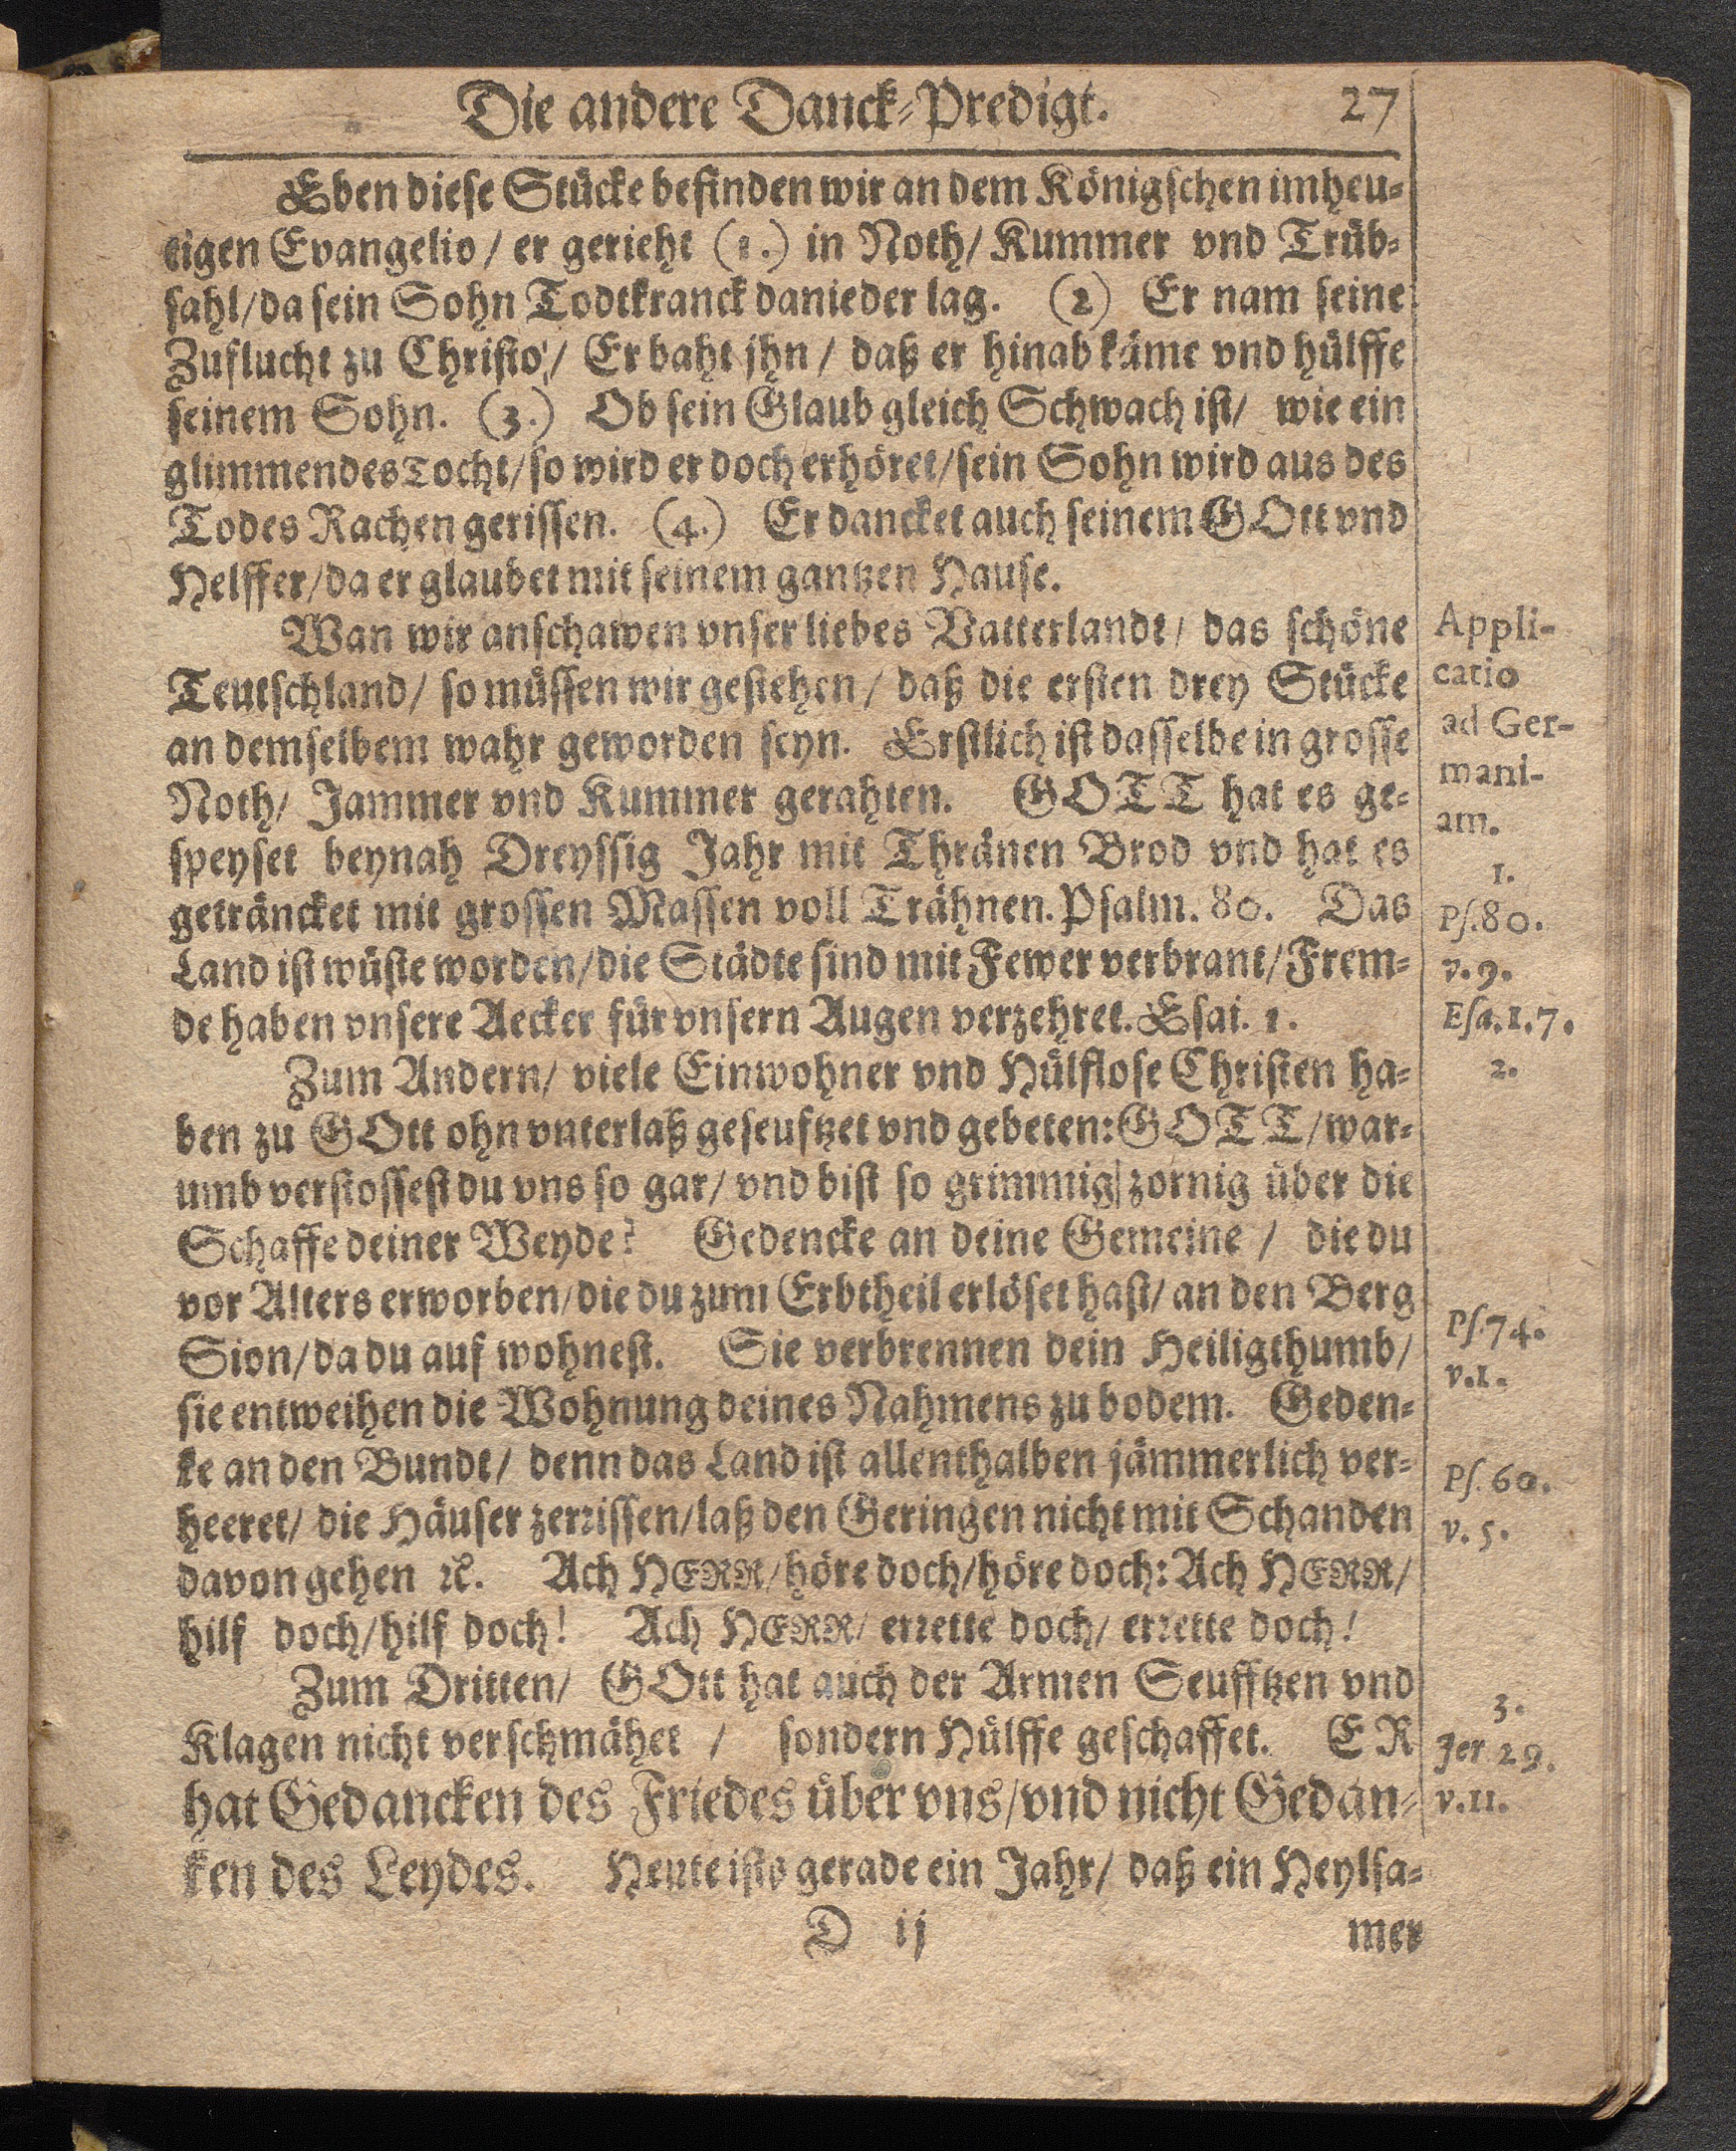 Die andere Danck-Predigt. 27
Eben diese Stücke befinden wir an dem Königschen im heu-
tigen Evangelio / er gerieht (1.) in Noth / Kummer vnd Trüb-
sahl / da sein Sohn Todtkranck danieder lag. (2) Er nam seine
Zuflucht zu Christo / Er baht jhn / daß er hinab käme vnd hülffe
seinem Sohn. (3.) Ob sein Glaub gleich Schwach ist / wie ein
glimmendes Tocht / so wird er doch erhöret / sein Sohn wird aus des
Todes Rachen gerissen. (4.) Er dancket auch seinem GOtt vnd
Helffer / da er glaubet mit seinem gantzen Hause.
Wan wir anschawen vnser liebes Vatterlandt / das schöne
Teutschland / so müssen wir gestehen / daß die ersten drey Stücke
an demselbem wahr geworden seyn. Erstlich ist dasselbe in grosse
Noth / Jammer vnd Kummer gerahten. GOTT hat es ge-
speyset beynah Dreyssig Jahr mit Thränen Brod vnd hat es
geträncket mit grossen Massen voll Trähnen. Psalm. 80. Das
Land ist wüste worden / die Städte sind mit Fewer verbrant / Frem-
de haben vnsere Aecker für vnsern Augen verzehret. Esai. 1.
Zum Andern / viele Einwohner vnd Hülflose Christen ha-
ben zu GOtt ohn vnterlaß geseuftzet vnd gebeten: GOTT / war-
umb verstossest du vns so gar / vnd bist so grimmig zornig über die
Schaffe deiner Weyde? Gedencke an deine Gemeine / die du
vor Alters erworben / die du zum Erbtheil erlöset hast / an den Berg
Sion / da du auf wohnest. Sie verbrennen dein Heiligthumb /
sie entweihen die Wohnung deines Nahmens zu bodem. Geden-
ke an den Bundt / denn das Land ist allenthalben jämmerlich ver-
heeret / die Häuser zerrissen / laß den Geringen nicht mit Schanden
davon gehen ꝛc. Ach HERR / höre doch / höre doch: Ach HERR /
hilf doch / hilf doch! Ach HERR / errette doch / errette doch!
Zum Dritten / GOtt hat auch der Armen Seufftzen vnd
Klagen nicht verschmähet / sondern Hülffe geschaffet. ER
hat Gedancken des Friedes über vns / vnd nicht Gedan-
ken des Leydes. Heute ists gerade ein Jahr / daß ein Heylsa-
D ij mer
Appli-
catio
ad Ger-
mani-
am.
1.
Ps. 80.
v. 9.
Esa. 1. 7.
2.
Ps. 74.
v. 1.
Ps. 60.
v. 5.
3.
Jer 29.
v. 11.